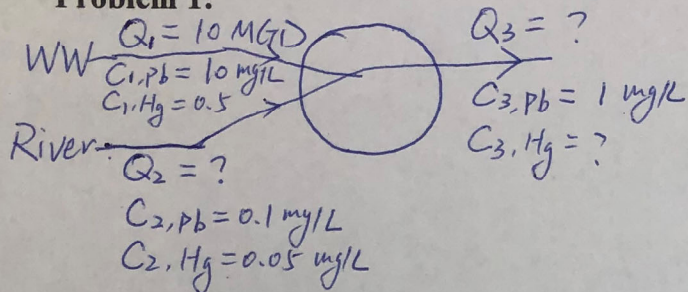 Problem 1:
Q₁ = 10 MGD
WW
C₁,Pb = 10 mg/L
C₁,Hg = 0.5
River
Q₂ = ?
C₂,Pb = 0.1 mg/L
C₂,Hg = 0.05 mg/L
Q₃ = ?
C₃,Pb = 1 mg/L
C₃,Hg = ?